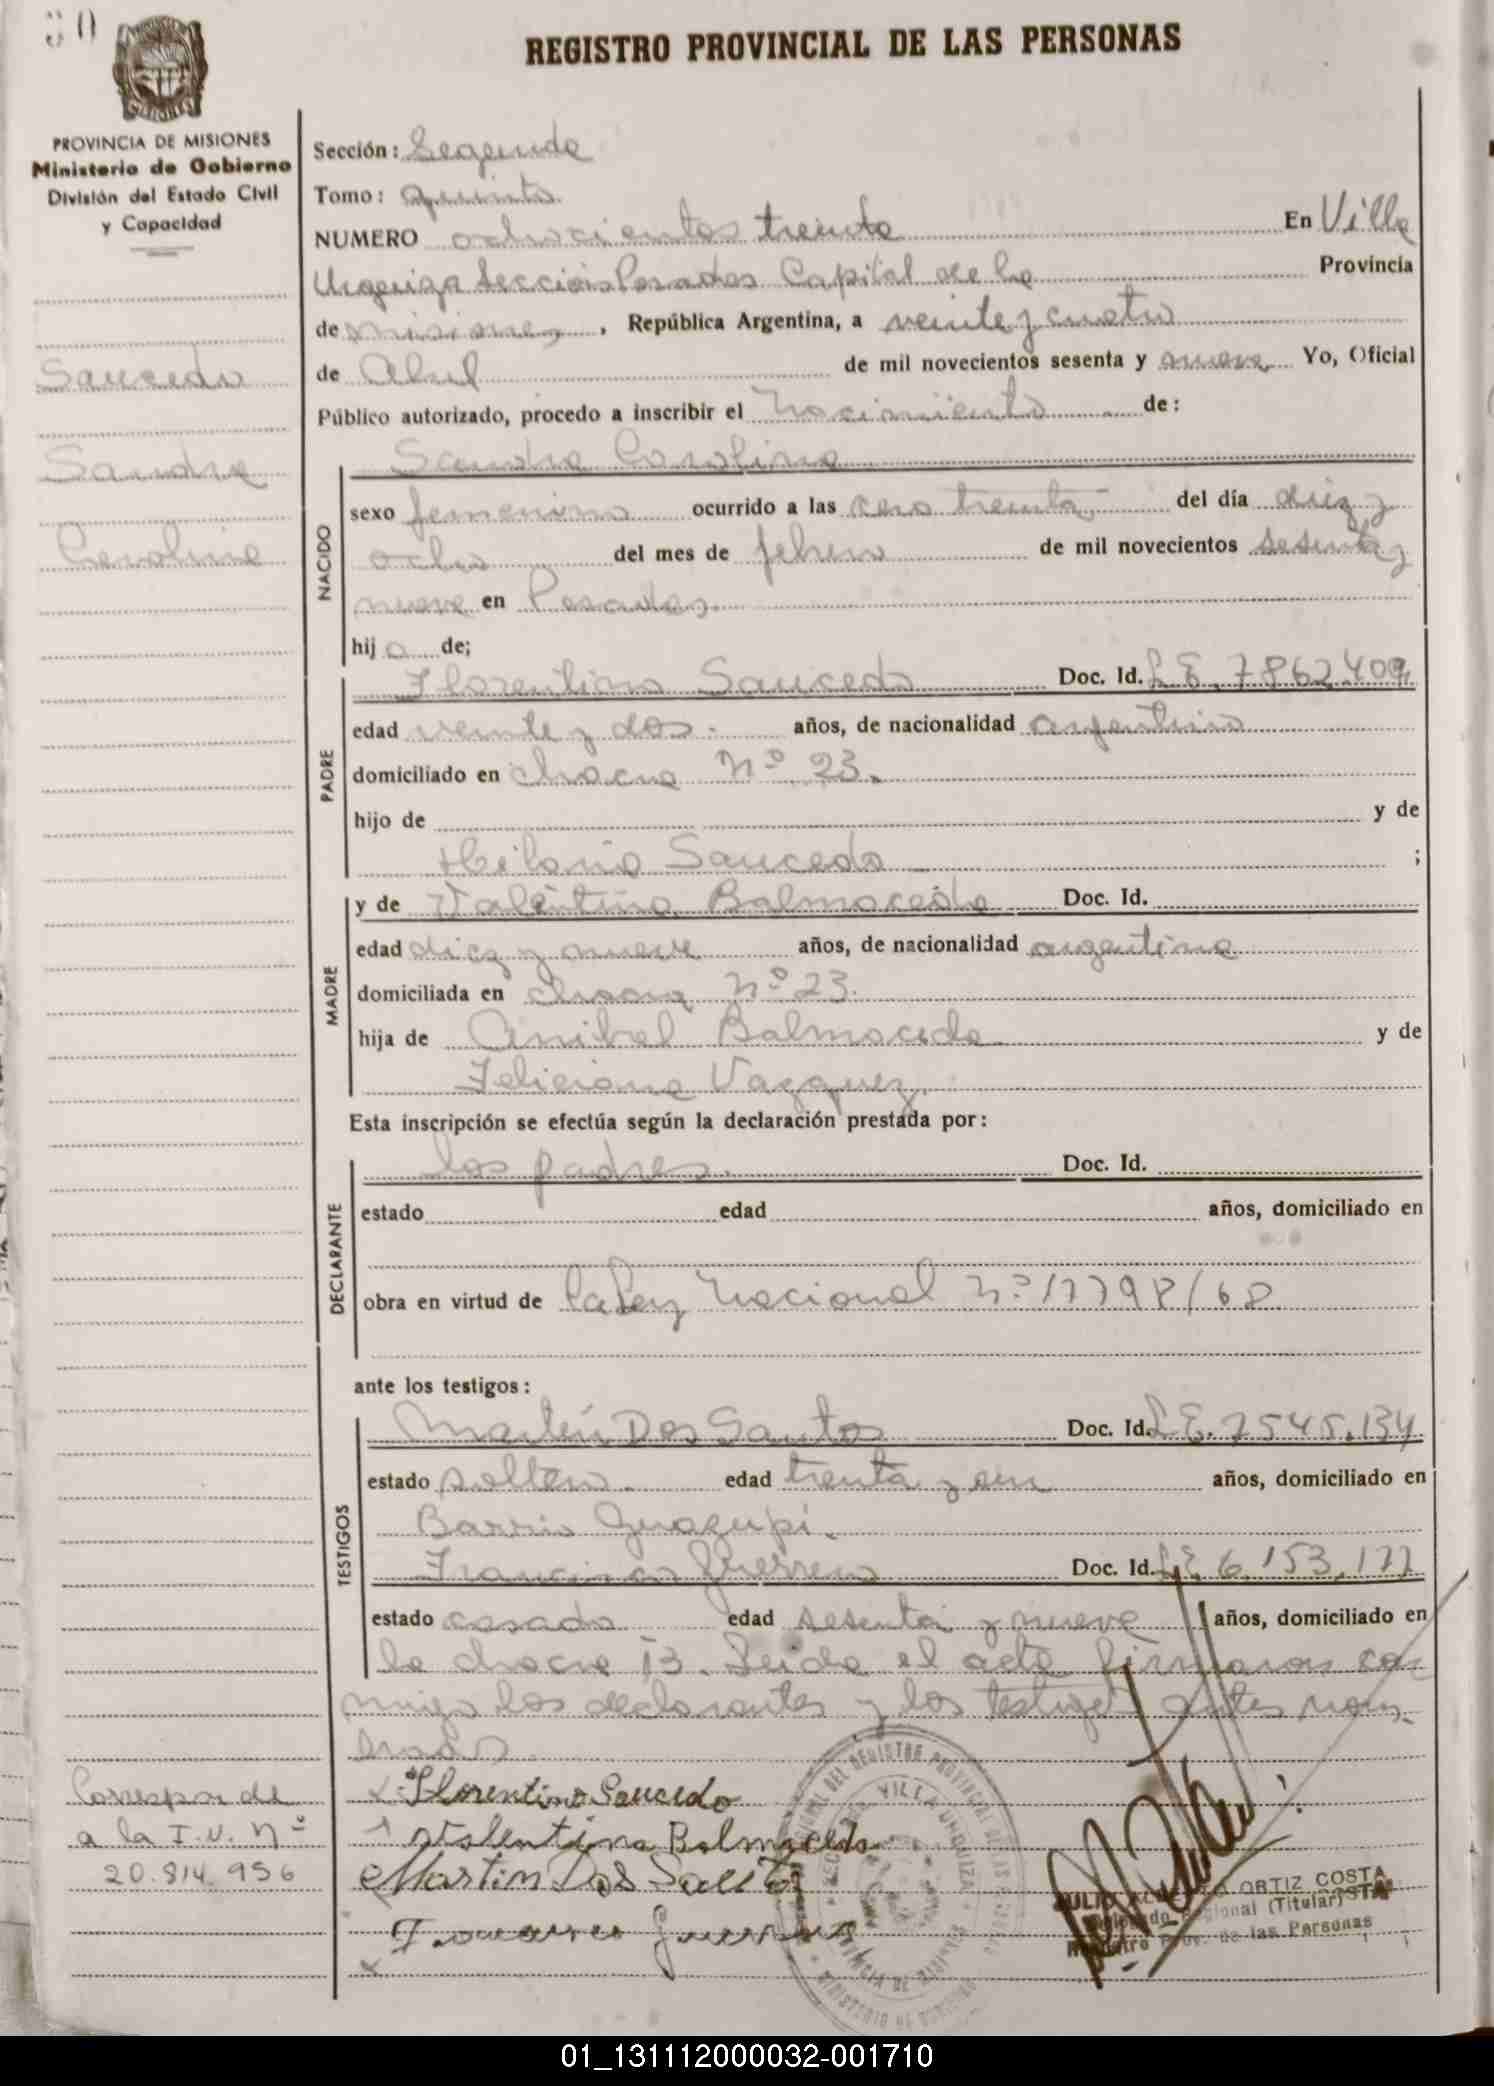 REGISTRO PROVINCIAL DE LAS PERSONAS
PROVINCIA DE MISIONES
Ministerio de Gobierno
División del Estado Civil
y Capacidad
Saucedo
Sandra
Carolina
Sección: Segunda
Tomo: quinto
NUMERO ochocientos treinta En Villa
Urquiza Sección Posadas Capital de la Provincia
de Misiones, República Argentina, a veinte y cuatro
de Abril de mil novecientos sesenta y nueve Yo, Oficial
Público autorizado, procedo a inscribir el Nacimiento de:
Sandra Carolina
NACIDO
sexo femenino ocurrido a las cero treinta del día diez y
ocho del mes de febrero de mil novecientos sesenta y
nueve en Posadas.
hija de;
PADRE
Florentino Saucedo Doc. Id. L E. 7862409
edad veinte y dos. años, de nacionalidad argentino
domiciliado en chacra Nº 23.
hijo de y de
Hilaria Saucedo ;
MADRE
y de Valentina Balmaceda Doc. Id.
edad diez y nueve años, de nacionalidad argentina
domiciliada en chacra Nº 23.
hija de Anibal Balmaceda y de
Feliciana Vazquez.
Esta inscripción se efectúa según la declaración prestada por:
DECLARANTE
los padres. Doc. Id.
estado edad años, domiciliado en
obra en virtud de la Ley Nacional Nº 17798/68
ante los testigos:
TESTIGOS
Martín Dos Santos Doc. Id. L E. 7545.134
estado soltero. edad trenta y un años, domiciliado en
Barrio Guazupi.
Francisco Guerrero Doc. Id. L E. 6.153.177
estado casado edad sesenta y nueve años, domiciliado en
la chacra 13. Leida el acta firmaron con
migo los declarantes y los testigos antes nom
brados.
Correspon de
a la I.U. Nº
20.814.956
Florentino Saucedo
Valentina Balmaceda
Martin Dos Santos
Francisco Guerrero
VILLA URQUIZA
ORTIZ COSTA
(Titular)
de las Personas
01_131112000032-001710